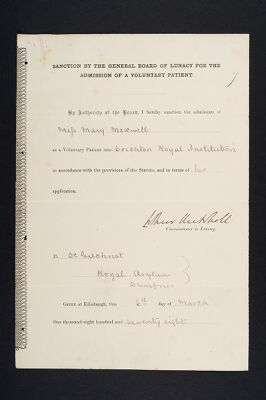 SANCTION BY THE GENERAL BOARD OF LUNACY FOR THE
ADMISSION OF A VOLUNTARY PATIENT.
By Authority of the Board, I hereby sanction the admission of
Miss Mary Maxwell
as a Voluntary Patient into Crichton Royal Institution
in accordance with the provisions of the Statute, and in terms of her
application.
Arthur Mitchell
Commissioner in Lunacy.
Dr Gilchrist
Royal Asylum
Dumfries
Given at Edinburgh, this 6th day of March
One thousand eight hundred and seventy eight